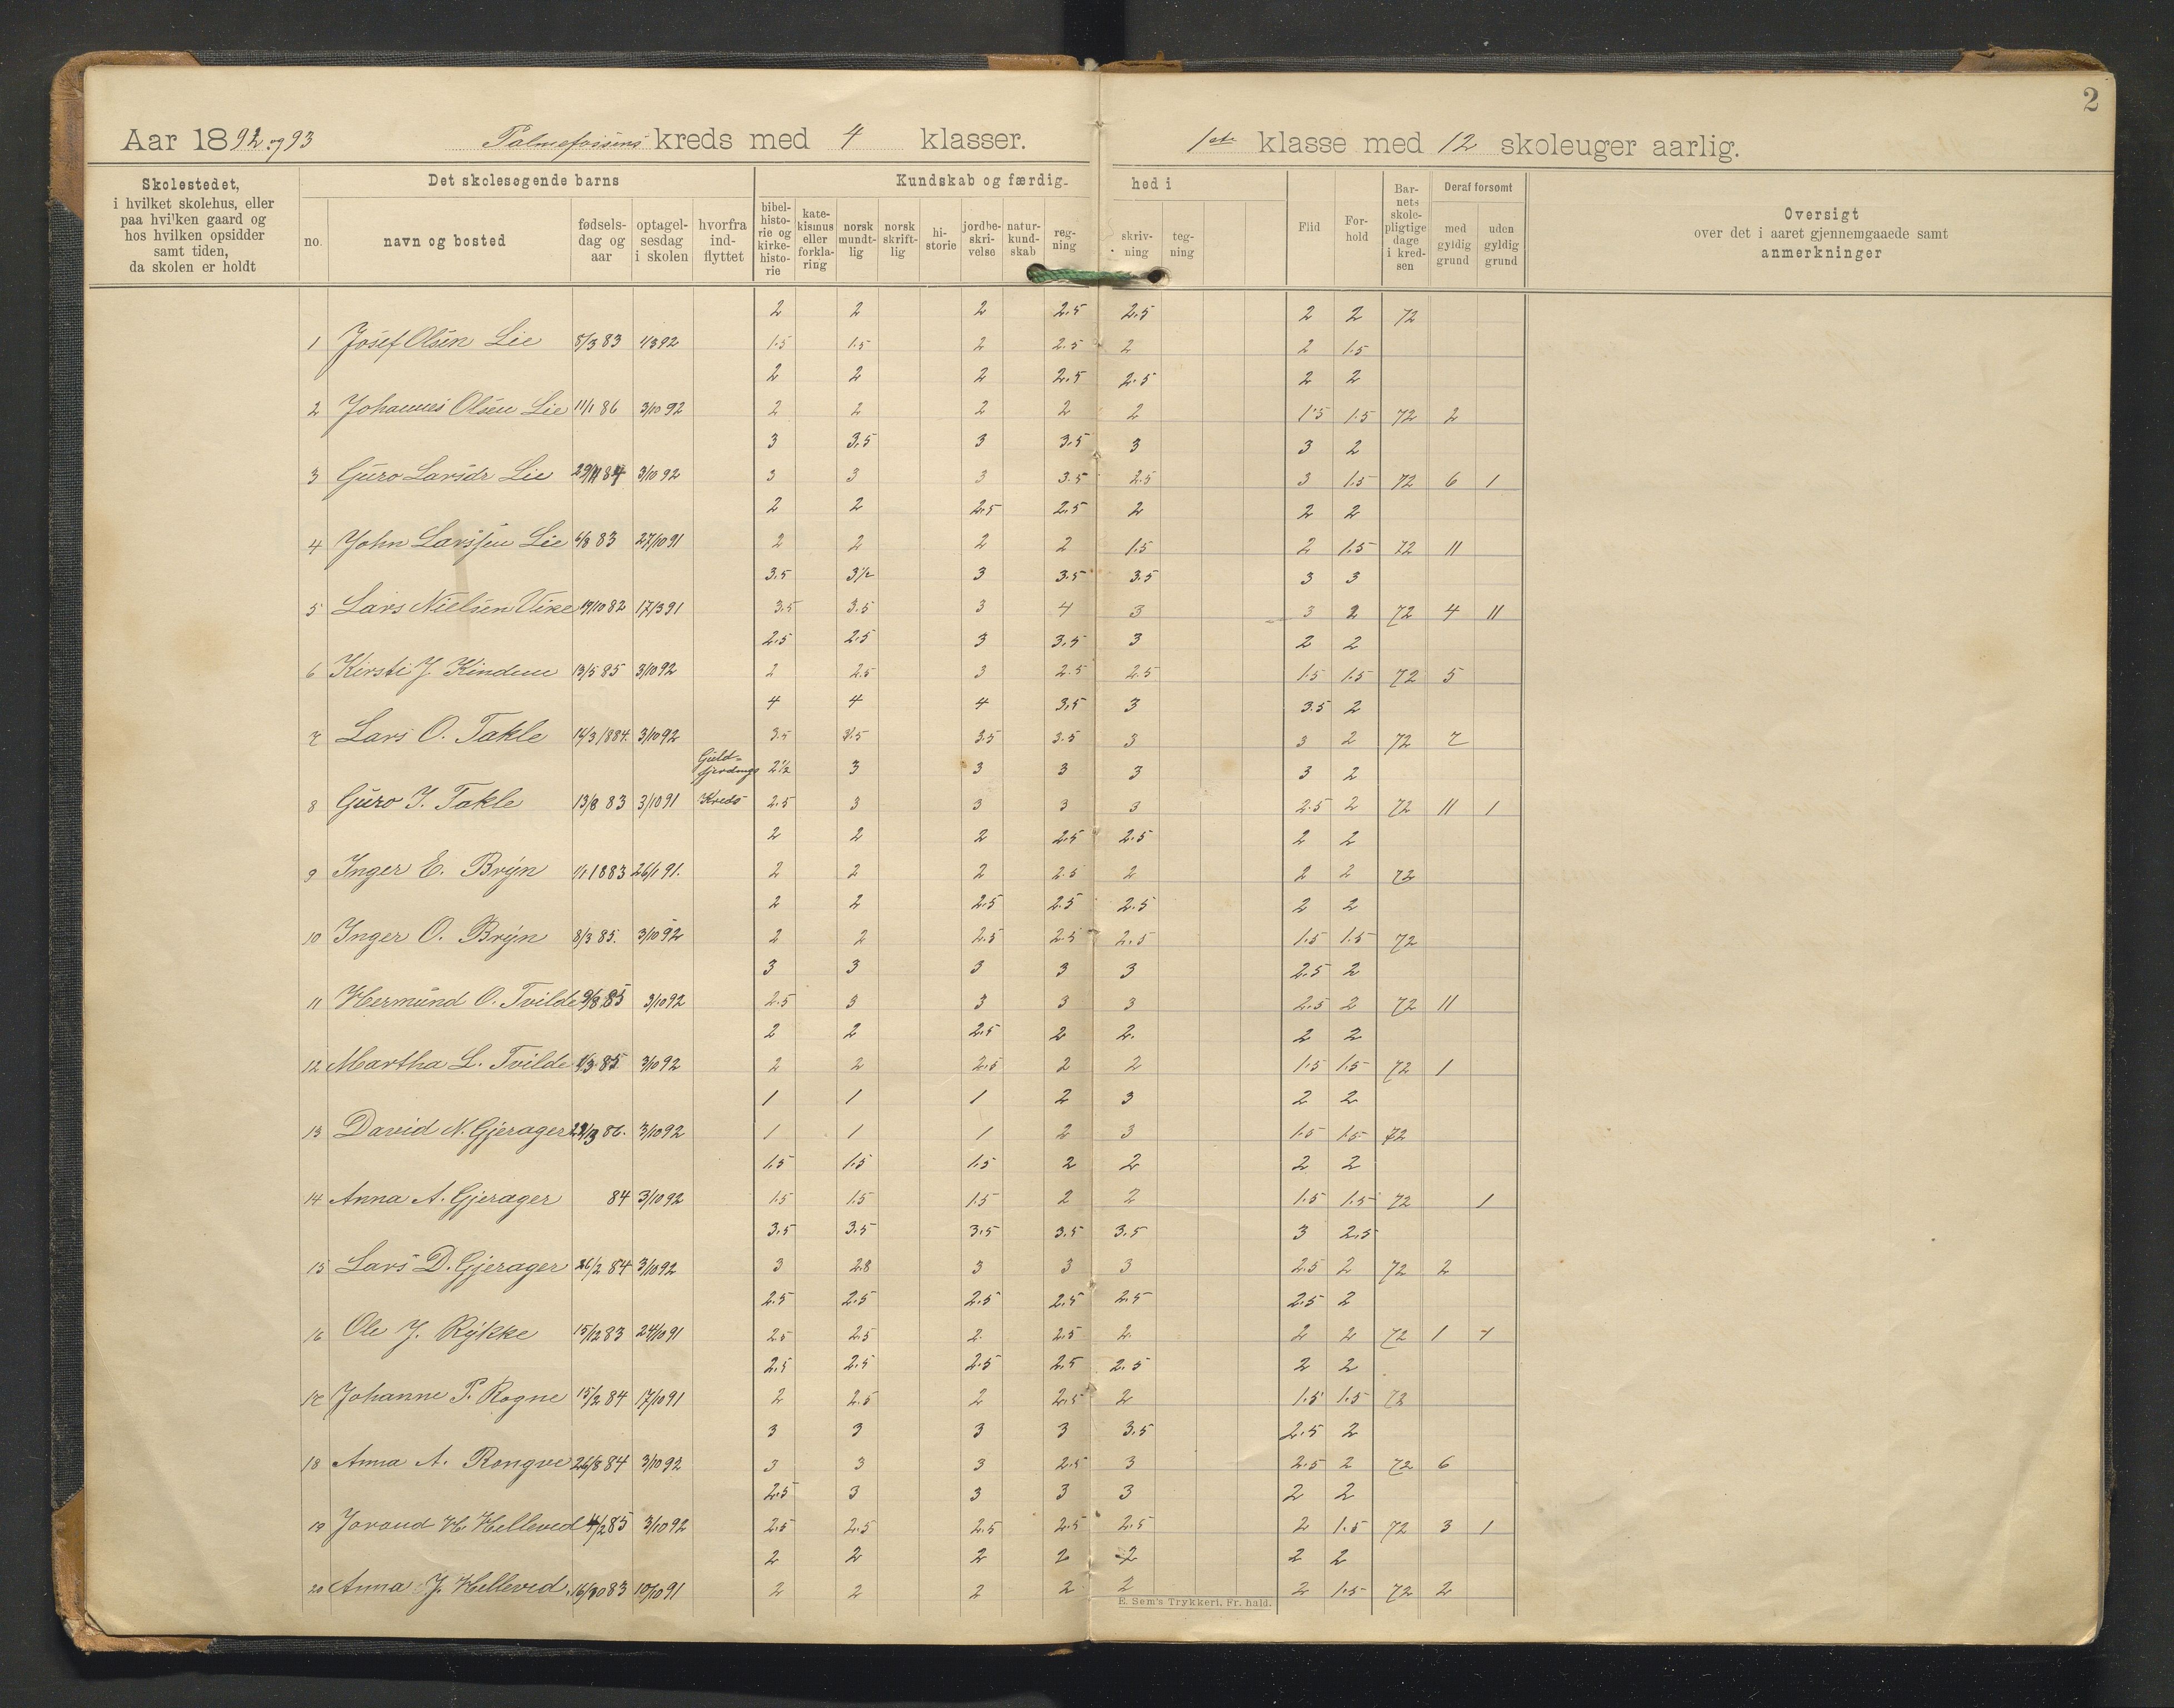 2
Aar 1892 og 93 Palmefossens kreds med 4 klasser. 1ste klasse med 12 skoleuger aarlig.
Skolestedet, i hvilket skolehus, eller paa hvilken gaard og hos hvilken opsidder samt tiden, da skolen er holdt
Det skolesøgende barns
no. navn og bosted fødselsdag og aar optagelsesdag i skolen hvorfra indflyttet
Kundskab og færdighed i
bibelhistorie og kirkehistorie katekismus eller forklaring norsk mundtlig norsk skriftlig historie jordbeskrivelse naturkundskab regning skrivning tegning
Flid Forhold Barnets skolepligtige dage i kredsen
Deraf forsømt med gyldig grund uden gyldig grund
Oversigt over det i aaret gjennemgaaede samt anmerkninger
2 2 2 2.5 2.5 2 2 72
1 Josef Olsen Lie 8/3 83 1/3 92 1.5 1.5 2 2.5 2 2 1.5
2 2 2 2.5 2.5 2 2
2 Johannes Olsen Lie 11/1 86 3/10 92 2 2 2 2 2 1.5 1.5 72 2
3 3.5 3 3.5 3 3 2
3 Guro Larsdr Lie 29/11 84 3/10 92 3 3 3 3.5 2.5 3 1.5 72 6 1
2 2 2.5 2.5 2 2 2
4 John Larssen Lie 6/8 83 27/10 91 2 2 2 2 1.5 2 1.5 72 11
3.5 3½ 3 3.5 3.5 3 3
5 Lars Nielsen Uke 19/10 82 17/3 91 3.5 3.5 3 4 3 3 2 72 4 11
2.5 2.5 3 3.5 3 2 2
6 Kirsti J. Kindem 13/5 85 3/10 92 2 2.5 3 2.5 2.5 1.5 1.5 72 5
4 4 4 3.5 3 3.5 2
7 Lars O. Takle 14/3 1884. 3/10 92 3.5 3.5 3.5 3.5 3 3 2 72 7
Guldfjerdings 2½ 3 3 3 3 3 2
8 Guro J. Takle 13/8 83 3/10 91 Kreds 2.5 3 3 3 3 2.5 2 72 11 1
2 2 2 2.5 2.5 2 2
9 Inger E. Bryn 1/1 1883 26/1 91. 2 2 2 2.5 2 2 2 72
2 2 2.5 2.5 2.5 2 2
10 Inger O. Bryn 8/3 85. 3/10 92 2 2 2.5 2.5 2.5 1.5 1.5 72
3 3 3 3 3 2.5 2
11 Hermund O. Tvilde 9/8 85 3/10 92 2.5 3 3 3 3 2.5 2 72 11
2 2 2.5 2 2. 2 2
12 Martha L. Tvilde 1/3 85 3/10 92 2 2 2.5 2 2 1.5 1.5 72 1
1 1 1 2 3 2 2
13 David N. Gjerager 22/3 86. 3/10 92 1 1 1 2 3 1.5 1.5 72
1.5 1.5 1.5 2 2 2 2
14 Anna A. Gjerager 84 3/10 92 1.5 1.5 1.5 2 2 1.5 1.5 72 1
3.5 3.5 3.5 3.5 3.5 3 2.5
15 Lars D. Gjerager 26/2 84 3/10 92 3 2.8 3 3 3 2.5 2 72 2
2.5 2.5 2.5 2.5 2.5 2.5 2
16 Ole J. Rykke 15/12 83 24/10 91 2.5 2.5 2. 2.5 2. 2 2 72 1
2.5 2.5 2.5 2.5 2.5 2 2
17 Johanne P. Rogne 15/2 84 17/10 91 2 2.5 2 2.5 2 1.5 1.5 72
3 3 3 3 3.5 2.5 2
18 Anna A. Rongve 26/8 84 3/10 92 3 3 3 2.5 3 2.5 2 72 6
2.5 3 3 3 3 2 2
19 Jorand H. Helleved 4/2 85 3/10 92 2.5 2.5 2.5 2.5 2.5 2 1.5 72 3 1
2 2 2 2 2 2 2
20 Anna J. Helleved. 16/10 83 10/10 91 2 2 2 2 2 2 1.5 72 2
E. Sem's Trykkeri, Fr. hald.